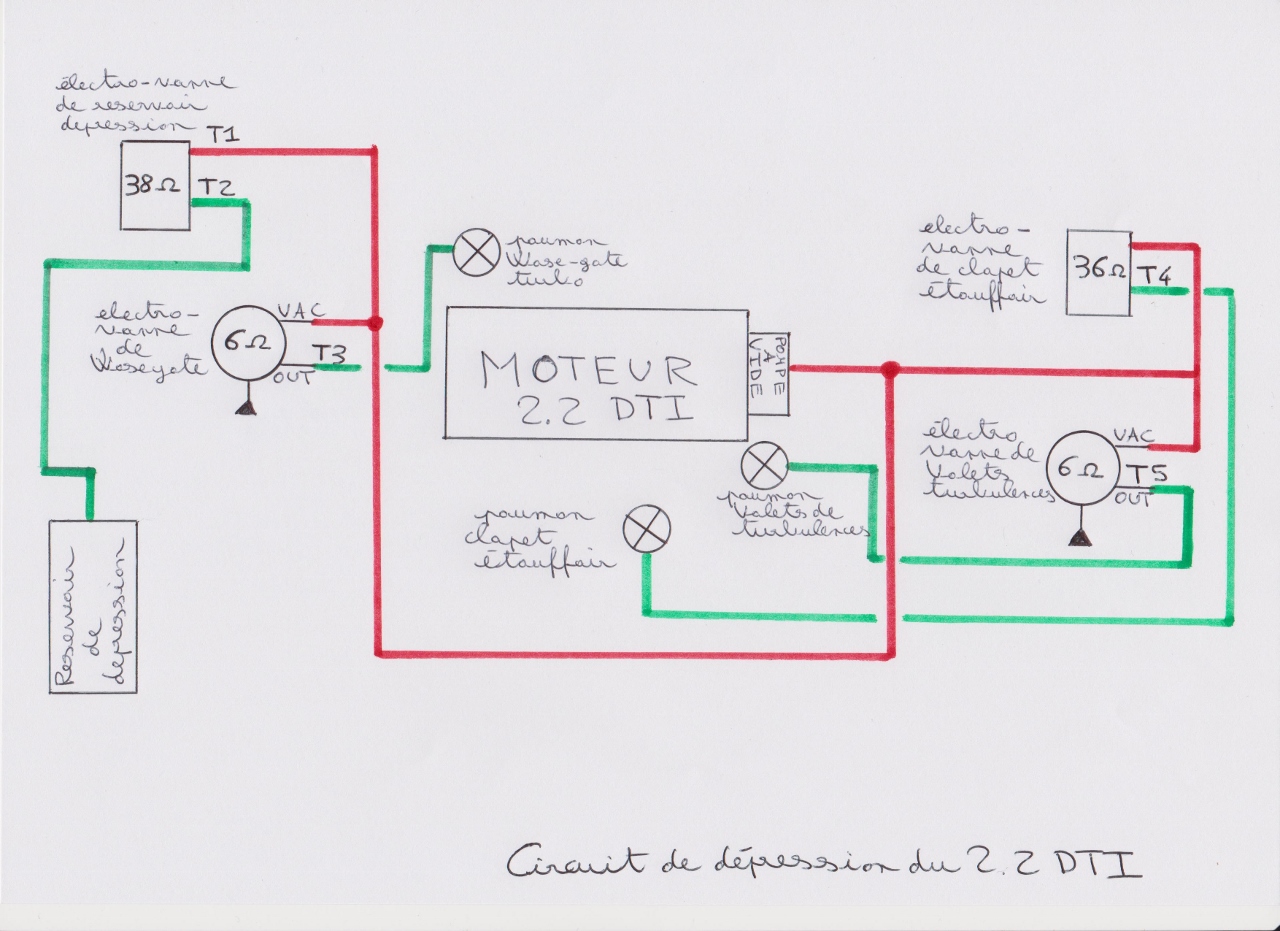 électro-vanne
de reservoir
depression
T1
38Ω
T2
electro-
vanne
de
Wasegate
VAC
6Ω
T3
OUT
poumon
Wase-gate
turbo
MOTEUR
2.2 DTI
POMPE
A
VIDE
electro-
vanne
de clapet
étouffoir
36Ω
T4
électro
vanne de
Volets
turbulences
VAC
6Ω
T5
OUT
poumon
Volets de
turbulences
poumon
clapet
étouffoir
Reservoir
de
depression
Circuit de dépression du 2.2 DTI